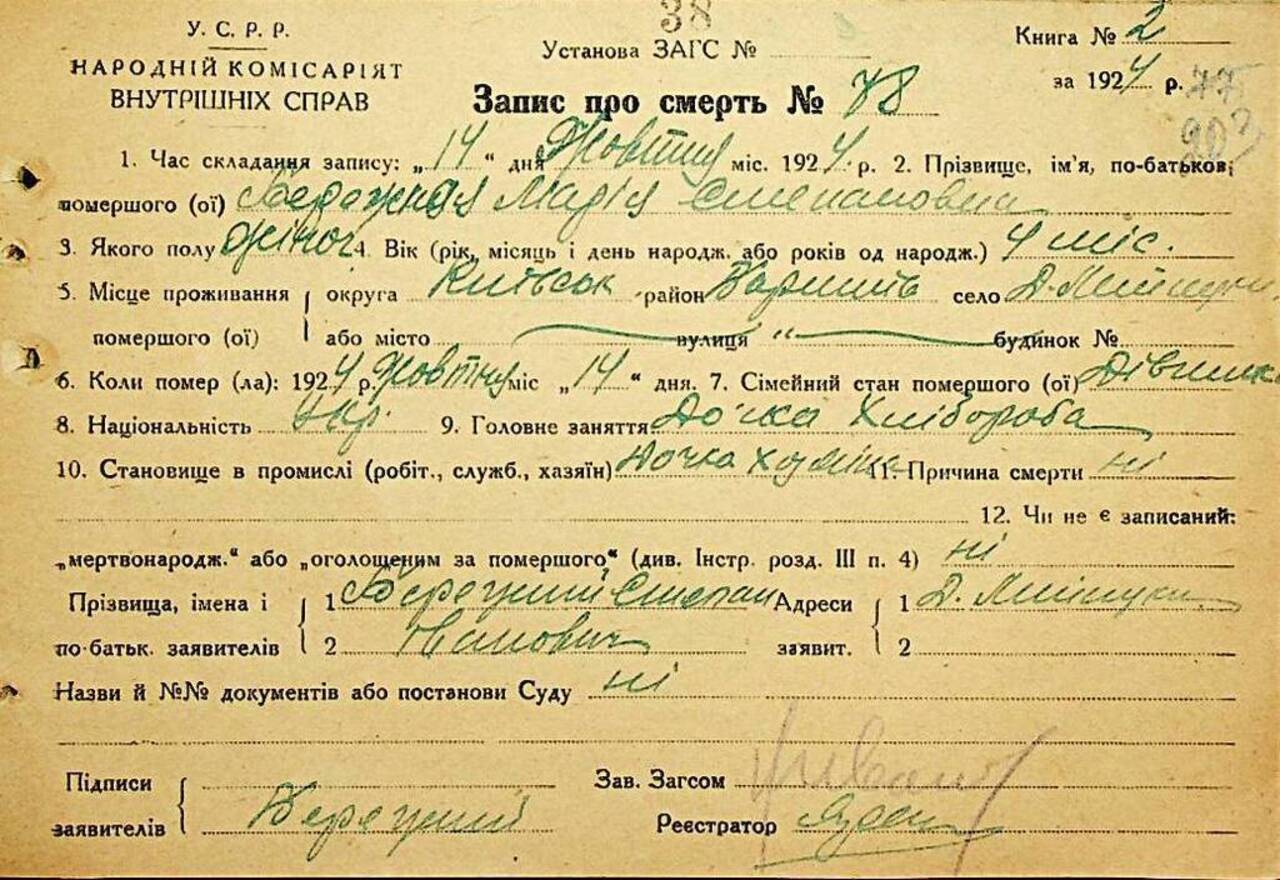 38
У. С. Р. Р.
НАРОДНІЙ КОМІСАРІЯТ
ВНУТРІШНІХ СПРАВ
Установа ЗАГС №
Книга № 2
за 1924 р.
Запис про смерть № 78
1. Час складання запису: „14“ дня Жовтня міс. 1924 р. 2. Прізвище, ім'я, по-батькові
помершого (ої) Марія Степановна
3. Якого полу жіноч 4. Вік (рік, місяць і день народж. або років од народж.) 4 міс.
5. Місце проживання округа Київськ район село Д.
помершого (ої) або місто вулиця “ будинок №
6. Коли помер (ла): 1924 р. Жовтня міс „14“ дня. 7. Сімейний стан помершого (ої)
8. Національність Укр. 9. Головне заняття Дочка Хлібороба
10. Становище в промислі (робіт., служб., хазяїн) Дочка 11. Причина смерти ні
12. Чи не є записаний:
„мертвонародж.“ або „оголошеним за помершого“ (див. Інстр. розд. III п. 4) ні
Прізвища, імена і 1 Степан Адреси 1 Д.
по-батьк. заявителів 2 Іванович заявит. 2
Назви й №№ документів або постанови Суду ні
Підписи
заявителів
Зав. Загсом
Реєстратор